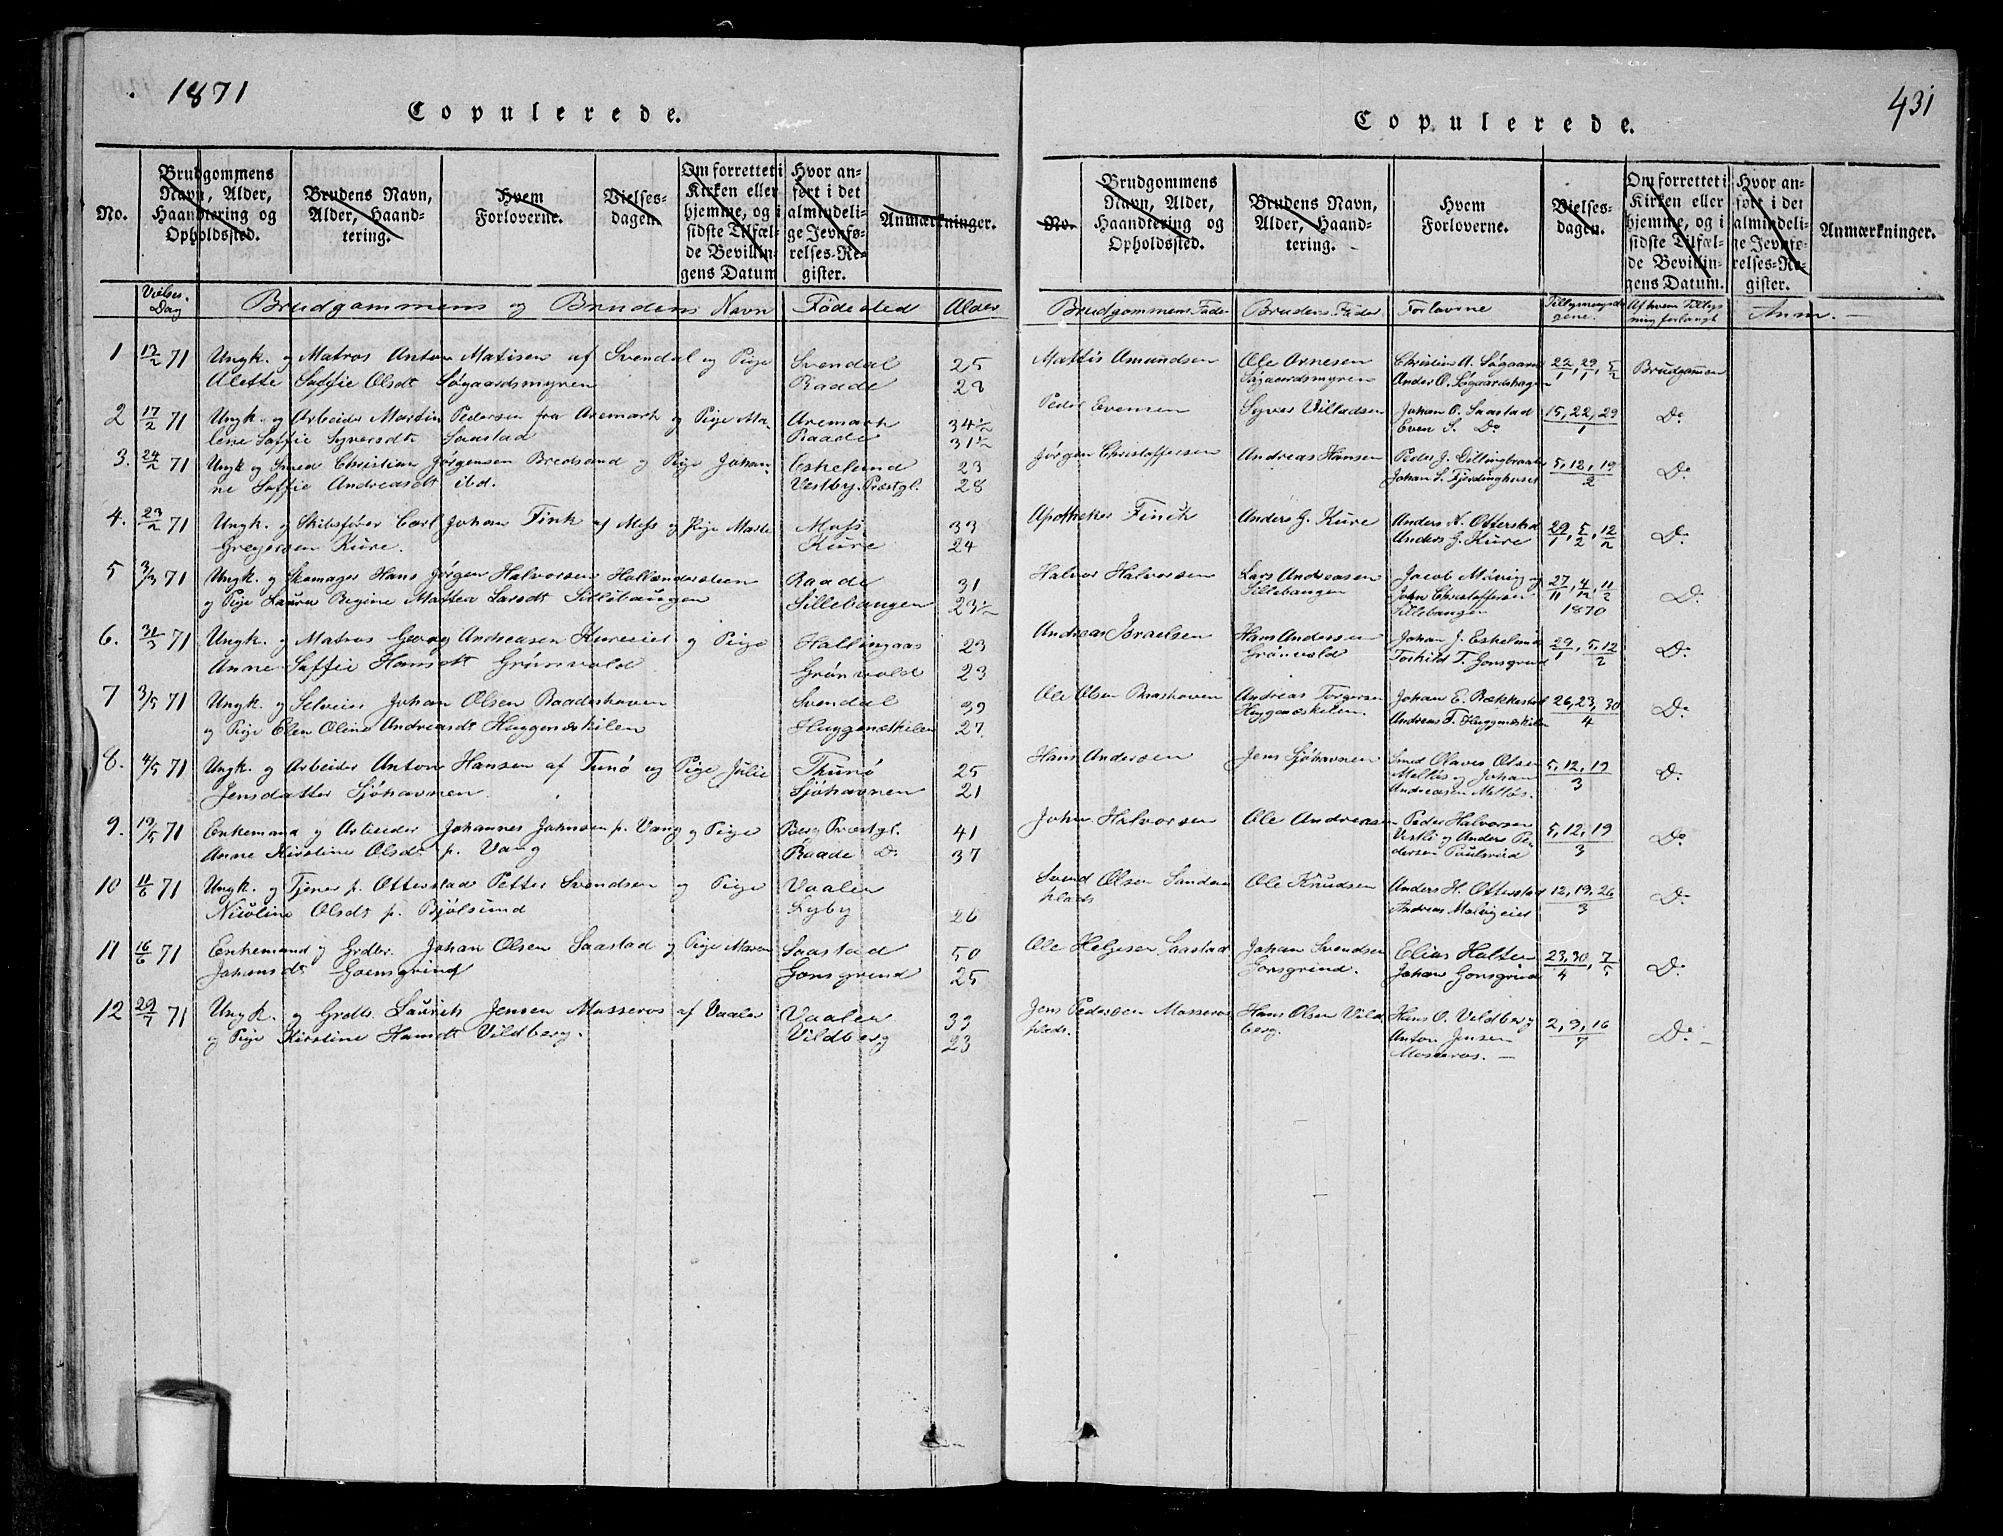 1871
Copulerede.
No.
Brudgommens Navn, Alder, Haandtering og Opholdssted.
Brudens Navn, Alder, Haandtering.
Hvem Forloverne.
Vielses-dagen.
Om forrettet i Kirken eller hjemme, og i sidste Tilfælde Bevillingens Datum
Hvor anført i det almindelige Jevnførelses-Register.
Anmærkninger.
Vielses-Dag
Brudgommens og Brudens Navn
Fødested
Alder
1 13/2 71 Ungk. og Matros Anton Matisen af Svendal og Pige Svendal 25
Alette Soffie Olsdt Søgaardsmyren Raade 28
2 17/2 71 Ungk. og Arbeider Martin Pedersen fra Aremark og Pige Ma- Aremark 34½
lene Soffie Syversdt Saastad Raade 31½
3. 24/2 71 Ungk og Smed Christian Jørgensen Bredsand og Pige Johan- Eskelund 23
ne Soffie Andreasdt ibd. Vestby Præstgl. 28
4. 23/2 71 Ungk. og Skibsfører Carl Johan Fink af Moss og Pige Marte Moss 33
Gregersen Kure. Kure 24
5 3/3 71 Ungk. og Skomager Hans Jørgen Halvorsen Hollændersteen Raade 31
og Pige Laura Regine Mattea Larsdt Sillebaugen Sillebaugen 23½
6. 31/3 71 Ungk. og Matros Georg Andreasen Kureeiet og Pige Hallingaas 23
Anne Soffie Hansdt Grønvold Grønvold 23
7 3/5 71 Ungk. og Selveier Johan Olsen Raadeshaven Svendal 39
og Pige Elen Oline Andreasdt Huggenæskilen Huggenæskilen 27
8. 4/5 71 Ungk. og Arbeider Anton Hansen af Tunø og Pige Julie Thunø 25
Jensdatter Sjøhavnen Sjøhavnen 21
9. 19/5 71 Enkemand og Arbeider Johannes Johnsen p. Vang og Pige Berg Præstgl. 41
Anne Kirstine Olsdt p. Vang Raade Do 37
10 11/6 71 Ungk. og Tjener p. Otterstad Petter Svendsen og Pige Vaaler
Nicoline Olsdt p. Bjølsund Ryby 26
11 16/6 71 Enkemand og Grder. Johan Olsen Saastad og Pige Maren Saastad 50
Johansdt Gonsgrind Gonsgrind 25
12 29/7 71 Ungk. og Grdb. Laurits Jensen Masseros af Vaaler Vaaler 33
og Pige Kirstine Hansdt Vildberg. Vildberg 23
431
Copulerede.
No.
Brudgommens Navn, Alder, Haandtering og Opholdssted.
Brudens Navn, Alder, Haandtering.
Hvem Forloverne.
Vielses-dagen.
Om forrettet i Kirken eller hjemme, og i sidste Tilfælde Bevillingens Datum.
Hvor anført i det almindelige Jevnførelses-Register.
Anmærkninger.
Brudgommens Fader
Brudens Fader
Forlovne
Tillysningsdagene.
Af hvem Tillysning forlangt
Anm. —
Mattis Amundsen Ole Arnesen Christian A. Søgaard 22/1, 29/1, 5/2 Brudgommen
Søgaardsmyren Anders O. Søgaardshagen
Peder Evensen Syver Villadsen Johan O. Saastad 15, 22, 29/1 Do
Even S. Do
Jørgen Christoffersen Andreas Hansen Peder J. Dillingbraaten 5, 12, 19/2 Do
Johan S. Fjerdinghuset
Apotheker Finck Anders G. Kure Anders N. Otterstad 29/1, 5/2, 12/2 Do
Anders G. Kure
Halvor Halvorsen Lars Andreasen Jacob 27/11, 4/12, 11/2 1870 Do
Sillebaugen John Christoffersen
Sillebaugen
Andreas Israelsen Hans Andersen Johan J. Eskelund 29/1, 5, 12/2 Do
Grønvold Torkild T. Gonsgrind
Ole Olsen Andreas Torgersen Johan E. Rækkestad 26, 23, 30/4 Do
Huggenæskilen. Andreas T. Huggenæskilen
Hans Andersen Jens Sjøhavnen Smed Olaves Olsen 5, 12, 19/3 Do
Melløs og Johan
Andreasen Melløs.
John Halvorsen Ole Andreasen Peder Halvorsen 5, 12, 19/3 Do
Vestli og Anders Pe-
dersen Paulsrød
Svend Olsen Sanden Ole Knudsen Anders H. Otterstad 12, 19, 26/3 Do
plads Andreas
Ole Helgesen Saastad Johan Svendsen Elias Halten 23, 30/4, 7/5 Do
Gonsgrind. Johan Gonsgrind
Jens Pedersen Masseros Hans Olsen Vild- Hans O. Vildberg 2, 9, 16/7 Do
plads. berg. Anton Jensen
Masseros. —